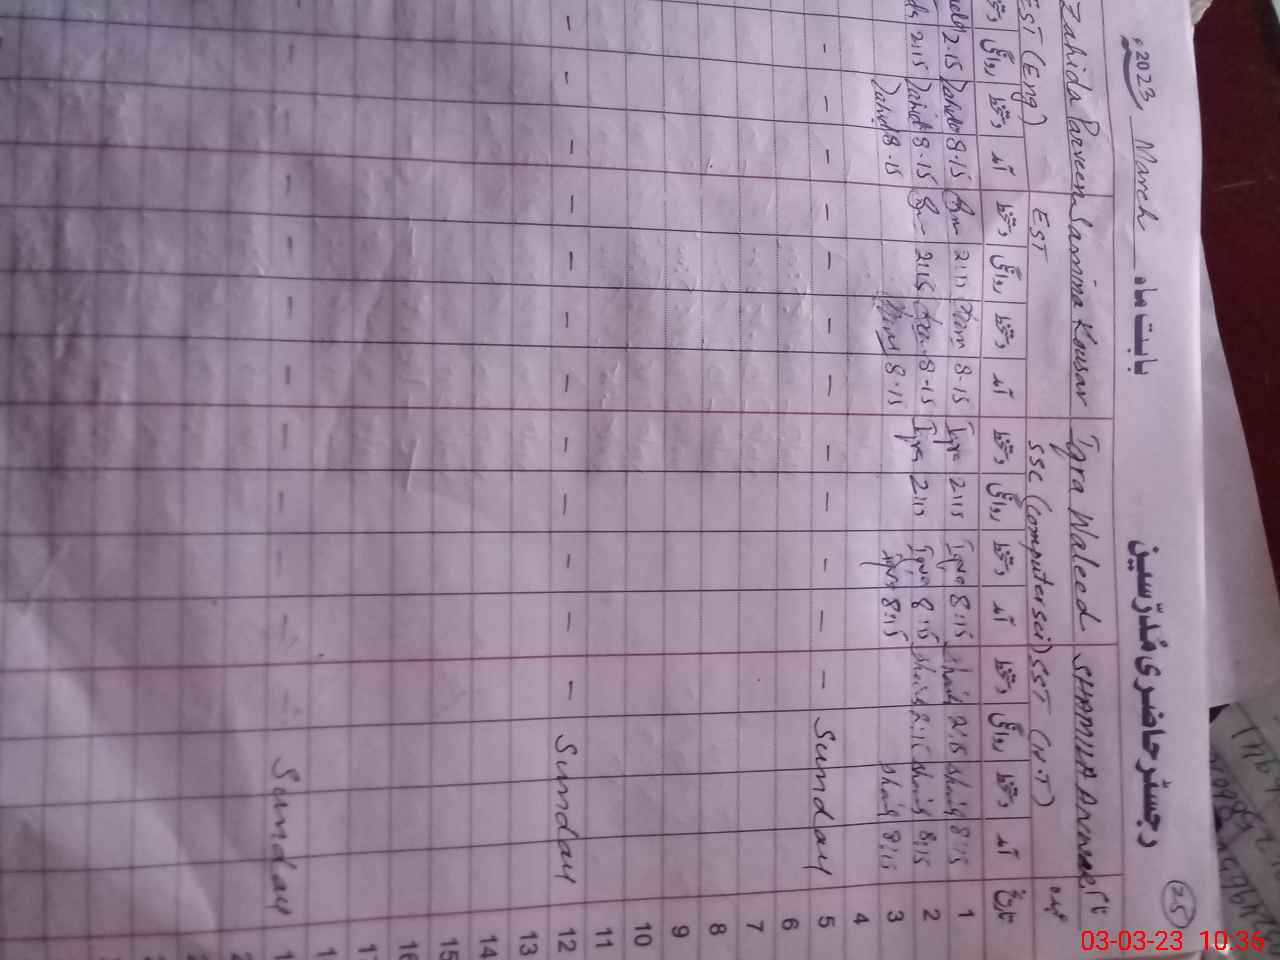 25
رجسٹر حاضری مُدرّسین
بابت ماہ March 2023ء
نام SHAMILA Anwar Iqra Waleed Samina Kousar Zahida Parveen
عہدہ SST (N.T) SSC (computer sci) EST EST (Eng)
تاریخ آمد دستخط روانگی دستخط آمد دستخط روانگی دستخط آمد دستخط روانگی دستخط آمد دستخط روانگی دستخط
1 8:15 2:15 8:15 Iqra 2:15 Iqra 8.15 2:15 8.15 Zahida 2.15
2 8:15 2:15 8:15 Iqra 2:15 Iqra 8.15 2:15 8.15 Zahida 2:15
3 8:15 8:15 Iqra 8:15 8.15 Zahida
4
5 Sunday - - - - - - - - - - - -
6
7
8
9
10
11
12 Sunday - - - - - - - - - - - -
13
14
15
16
Sunday - - - - - - - - - - -
03-03-23 10:36